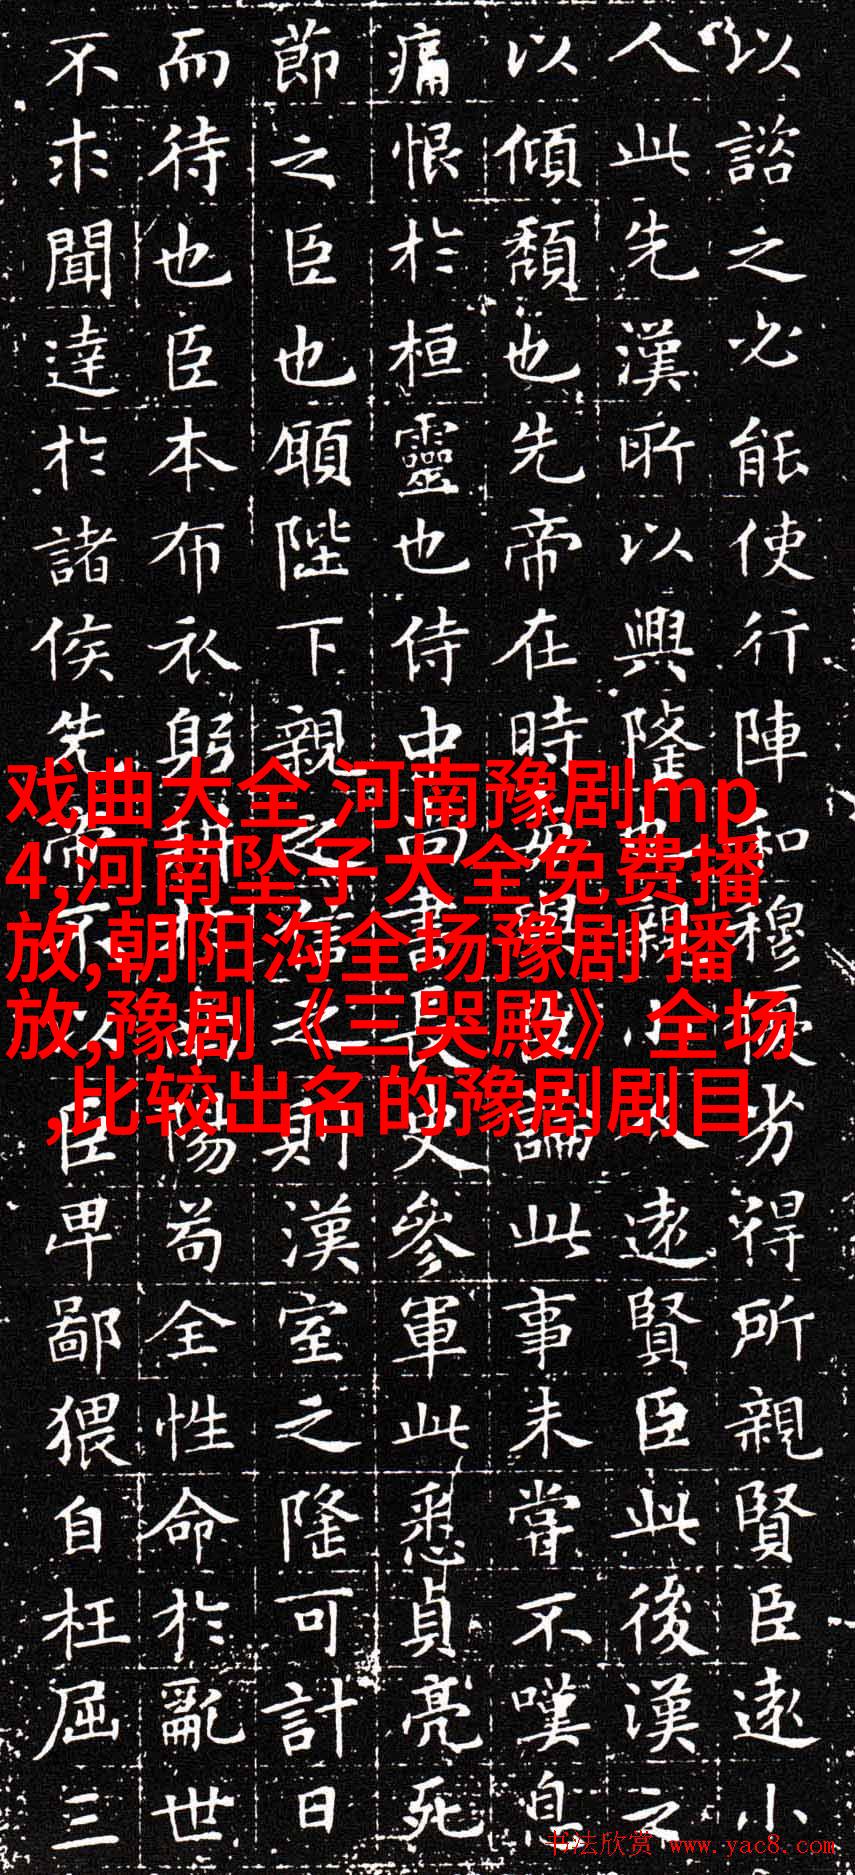 以諮之必能使行陣和穆優劣得所親賢臣遠小
人此先漢所以興隆也親小人遠賢臣此後漢之
以傾頹也先帝在時每與臣論此事未嘗不嘆息
痛恨於桓靈也侍中尚書長史參軍此悉貞亮死
節之臣也願陛下親之信之則漢室之隆可計日
而待也臣本布衣躬耕於南陽苟全性命於亂世
不求聞達於諸侯先帝不以臣卑鄙猥自枉屈三
戏曲大全 河南豫剧mp
4,河南坠子大全免费播
放,朝阳沟全场豫剧 播
放,豫剧《三哭殿》全场
,比较出名的豫剧剧目
书法欣赏 www.yac8.com